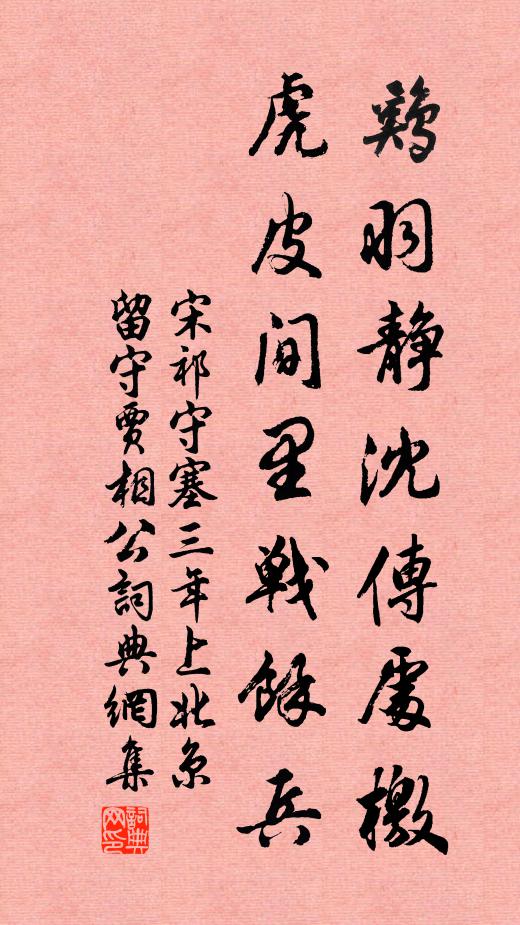 鷄羽静沈傳處檄
虎皮間里戦餘兵
宋祁守塞三年上北京
留守賈相公詞典網集
詞典网印